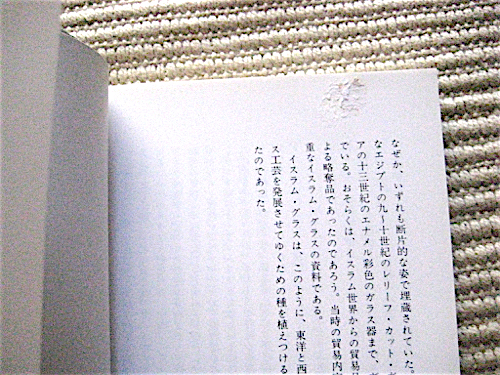 なぜか、いずれも断片的な姿で埋蔵されていた。
なエジプトの九〜十世紀のレリーフ・カット・
アの十三世紀のエナメル彩色のガラス器まで、
でいる。おそらくは、イスラム世界からの貿易
よる略奪品であったのであろう。当時の貿易内
重なイスラム・グラスの資料である。
イスラム・グラスは、このように、東洋と西
ス工芸を発展させてゆくための種を植えつける
たのであった。